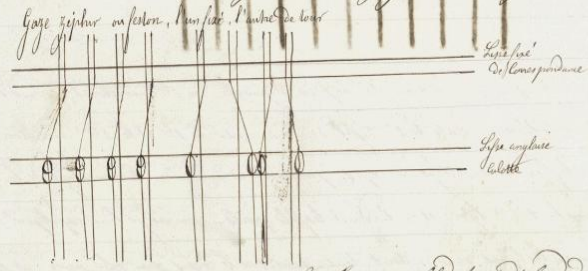 Gaze zéphir ou feston, l'un fixé, l'autre de tour
Lisse fixé
de Correspondance
Lisse anglaise
Culotte